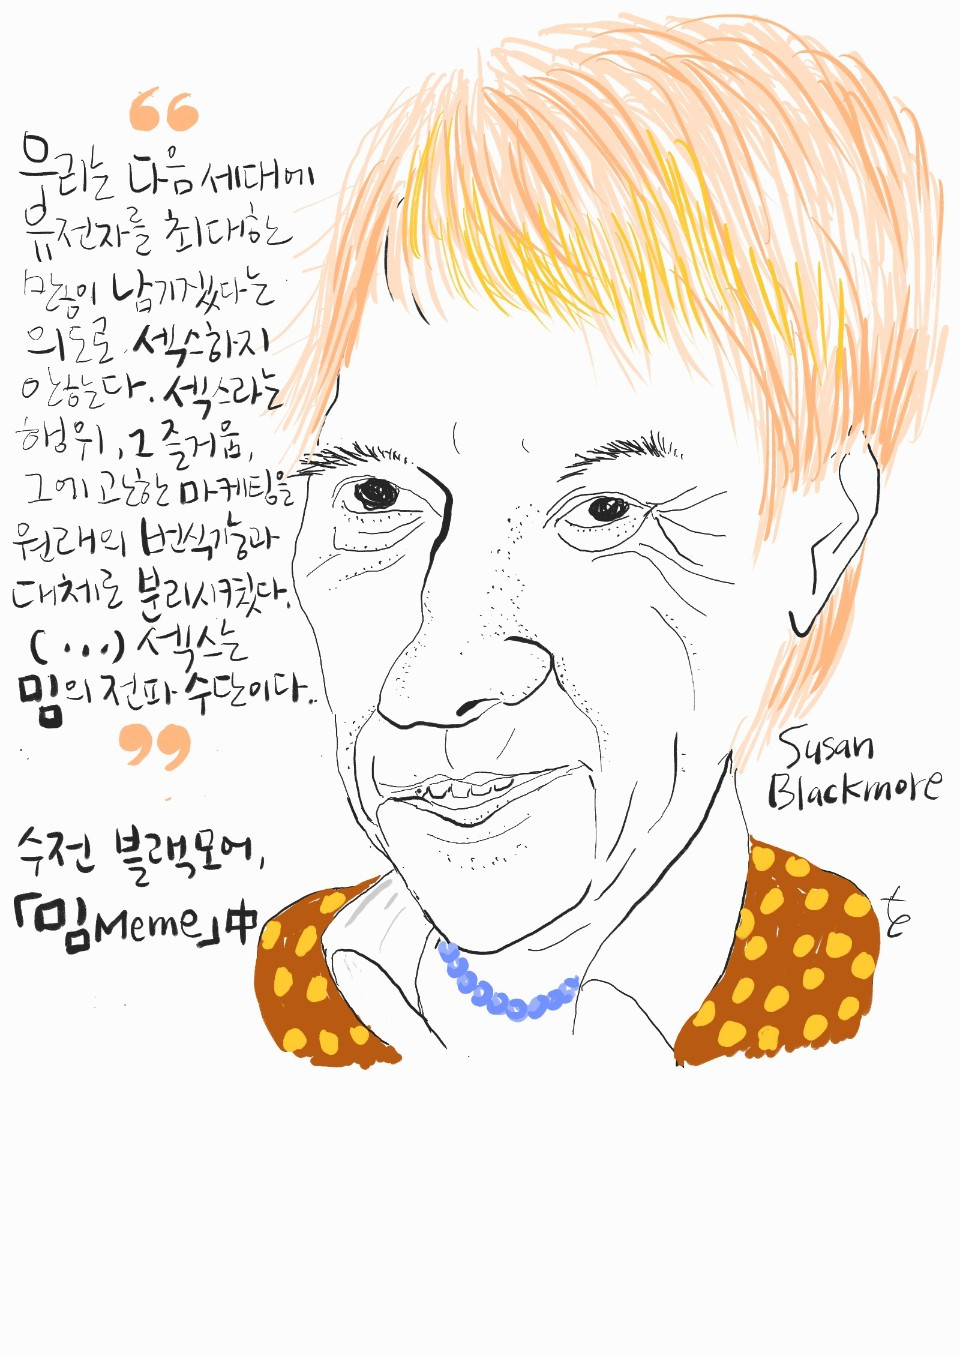 우리는 다음 세대에
유전자를 최대한
많이 남기겠다는
의도로 섹스하지
않는다. 섹스라는
행위, 그 즐거움,
그에 관한 마케팅을
원래의 번식기능과
대체로 분리시켰다.
(...) 섹스는
밈의 전파 수단이다..
수전 블랙모어,
「밈Meme」中
Susan
Blackmore